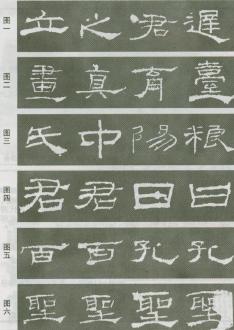 图一 立 之 君 遲
图二 畫 真 育 臺
图三 氏 中 陽 粮
图四 君 君 曰 曰
图五 百 百 孔 孔
图六 聖 聖 聖 聖